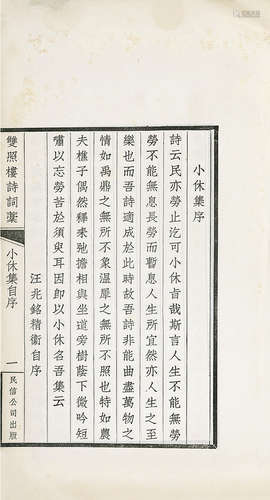 小休集序
詩云民亦勞止汔可小休旨哉斯言人生不能無勞
勞不能無息長勞而暫息人生所宜然亦人生之至
樂也而吾詩適成於此時故吾詩非能曲盡萬物之
情如禹鼎之無所不象溫犀之無所不照也特如農
夫樵子偶然釋耒弛擔相與坐道旁樹蔭下微吟短
嘯以忘勞苦於須臾耳因即以小休名吾集云
汪兆銘精衞自序
雙照樓詩詞藁
小休集自序
一
民信公司出版